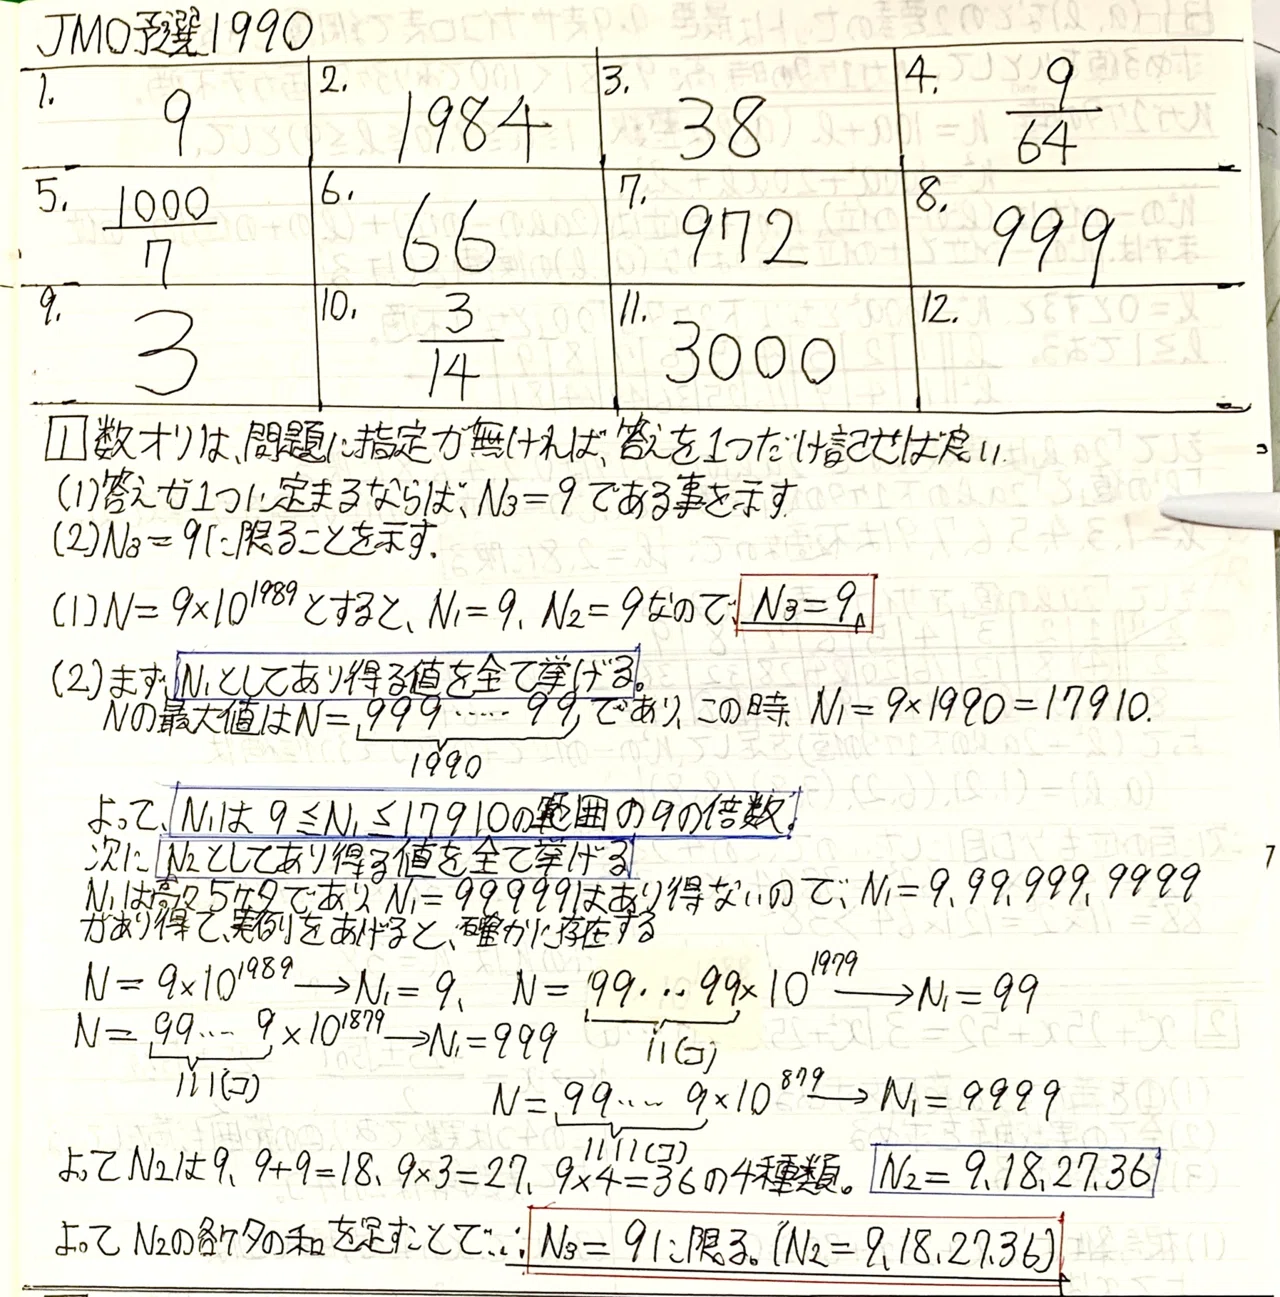 JMO予選1990
1. 9 2. 1984 3. 38 4. 9/64
5. 1000/7 6. 66 7. 972 8. 999
9. 3 10. 3/14 11. 3000 12.
1 数オリは、問題に指定が無ければ、答えを1つだけ記せば良い.
(1)答えが1つに定まるならば、N₃=9である事を示す.
(2)N₃=9に限ることを示す.
(1)N=9×10¹⁹⁸⁹とすると、N₁=9、N₂=9なので、N₃=9
(2)まず、N₁としてあり得る値を全て挙げる。
Nの最大値はN=999……99であり、この時、N₁=9×1990=17910.
1990
よって、N₁は9≦N₁≦17910の範囲の9の倍数。
次に N₂としてあり得る値を全て挙げる
N₁は高々5ケタであり、N₁=99999はあり得ないので、N₁=9,99,999,9999
があり得て、実例をあげると、確かに存在する
N=9×10¹⁹⁸⁹→N₁=9、 N=99…99×10¹⁹⁷⁹→N₁=99
11(コ)
N=99…9×10¹⁸⁷⁹→N₁=999
111(コ)
N=99…9×10⁸⁷⁹→N₁=9999
1111(コ)
よってN₂は9、9+9=18、9×3=27、9×4=36の4種類。 N₂=9,18,27,36
よってN₂の各ケタの和を足すことで、∴N₃=9に限る。(N₂=9,18,27,36)